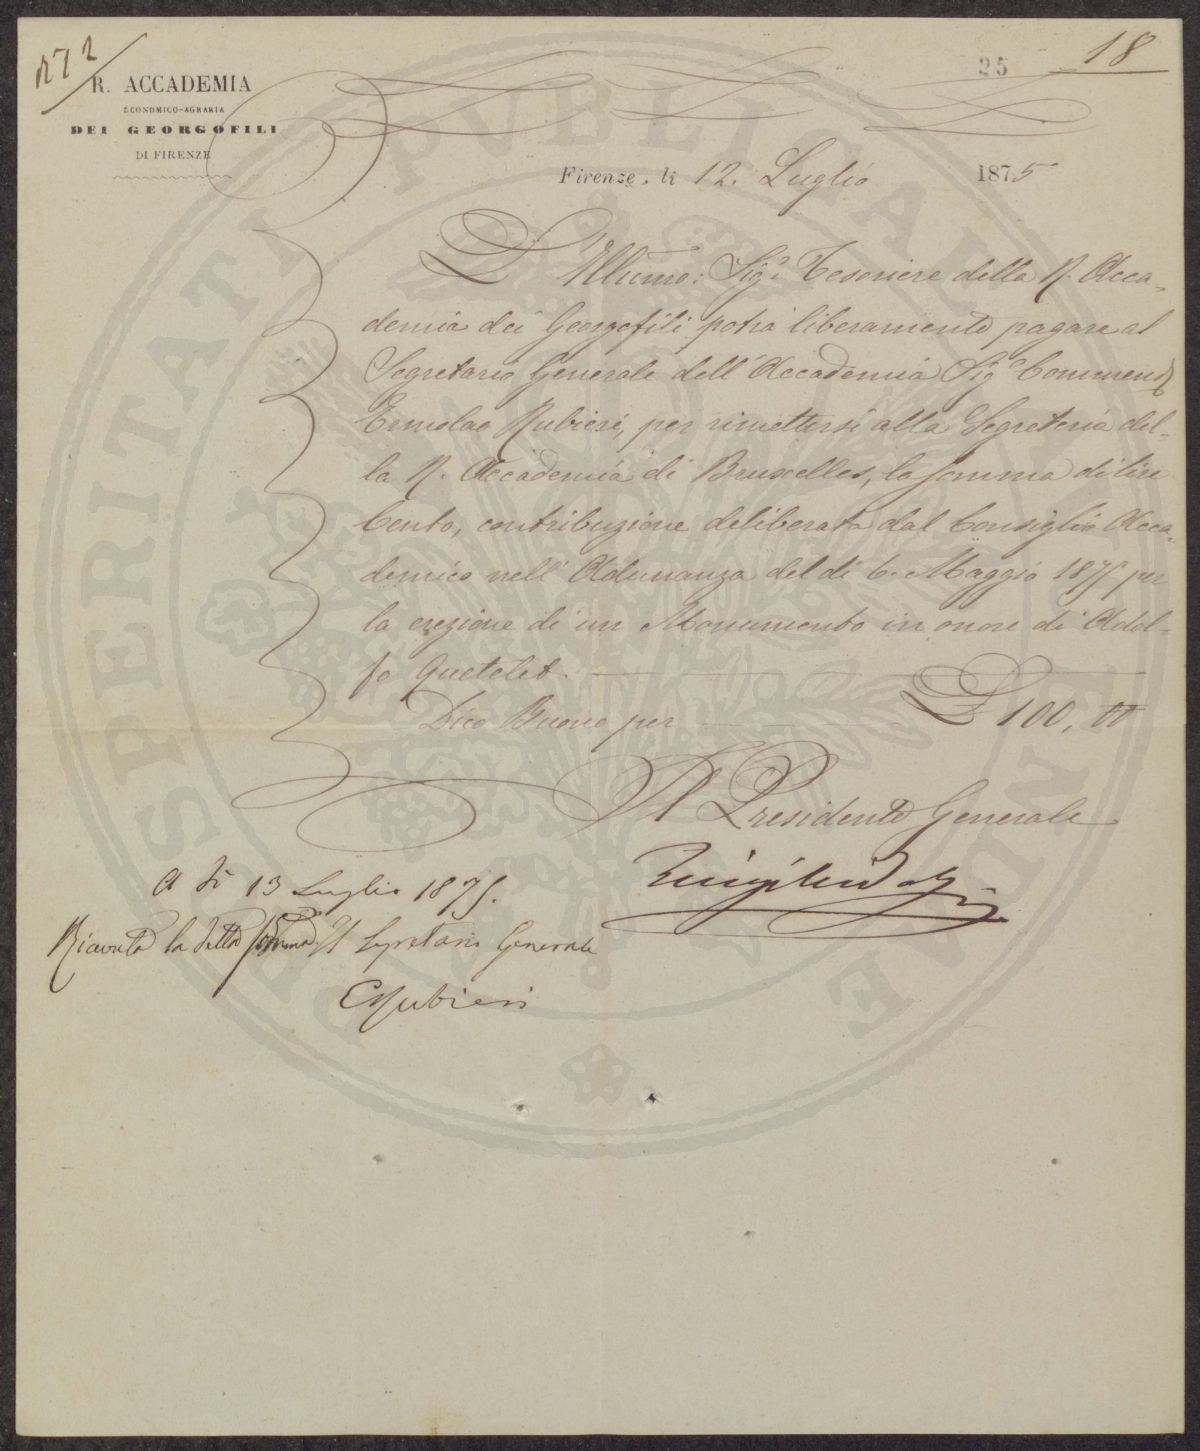 N° 2
18
25
R. ACCADEMIA
ECONOMICO-AGRARIA
DEI GEORGOFILI
DI FIRENZE
Firenze, li 12. Luglio 1875
L'Illumo: Sigr. Tesoriere della R. Acca-
demia dei Georgofili potrà liberamente pagare al
Segretario Generale dell'Accademia Sigr Commend
Ermolao Rubieri, per rimettersi alla Segreteria del-
la R. Accademia di Bruxelles, la somma di lire
Cento, contribuzione deliberata dal Consiglio Acca-
demico nell'Adunanza del dì 6. Maggio 1875 per
la erezione di un Monumento in onore di Adol-
fo Quetelet.
Dico Buono per L 100, 00
Il Presidente Generale
A dì 13 Luglio 1875.
Ricevuto la detta somma Il Segretario Generale
E Rubieri
PROSPERITATI PVBLICAE AVGENDAE